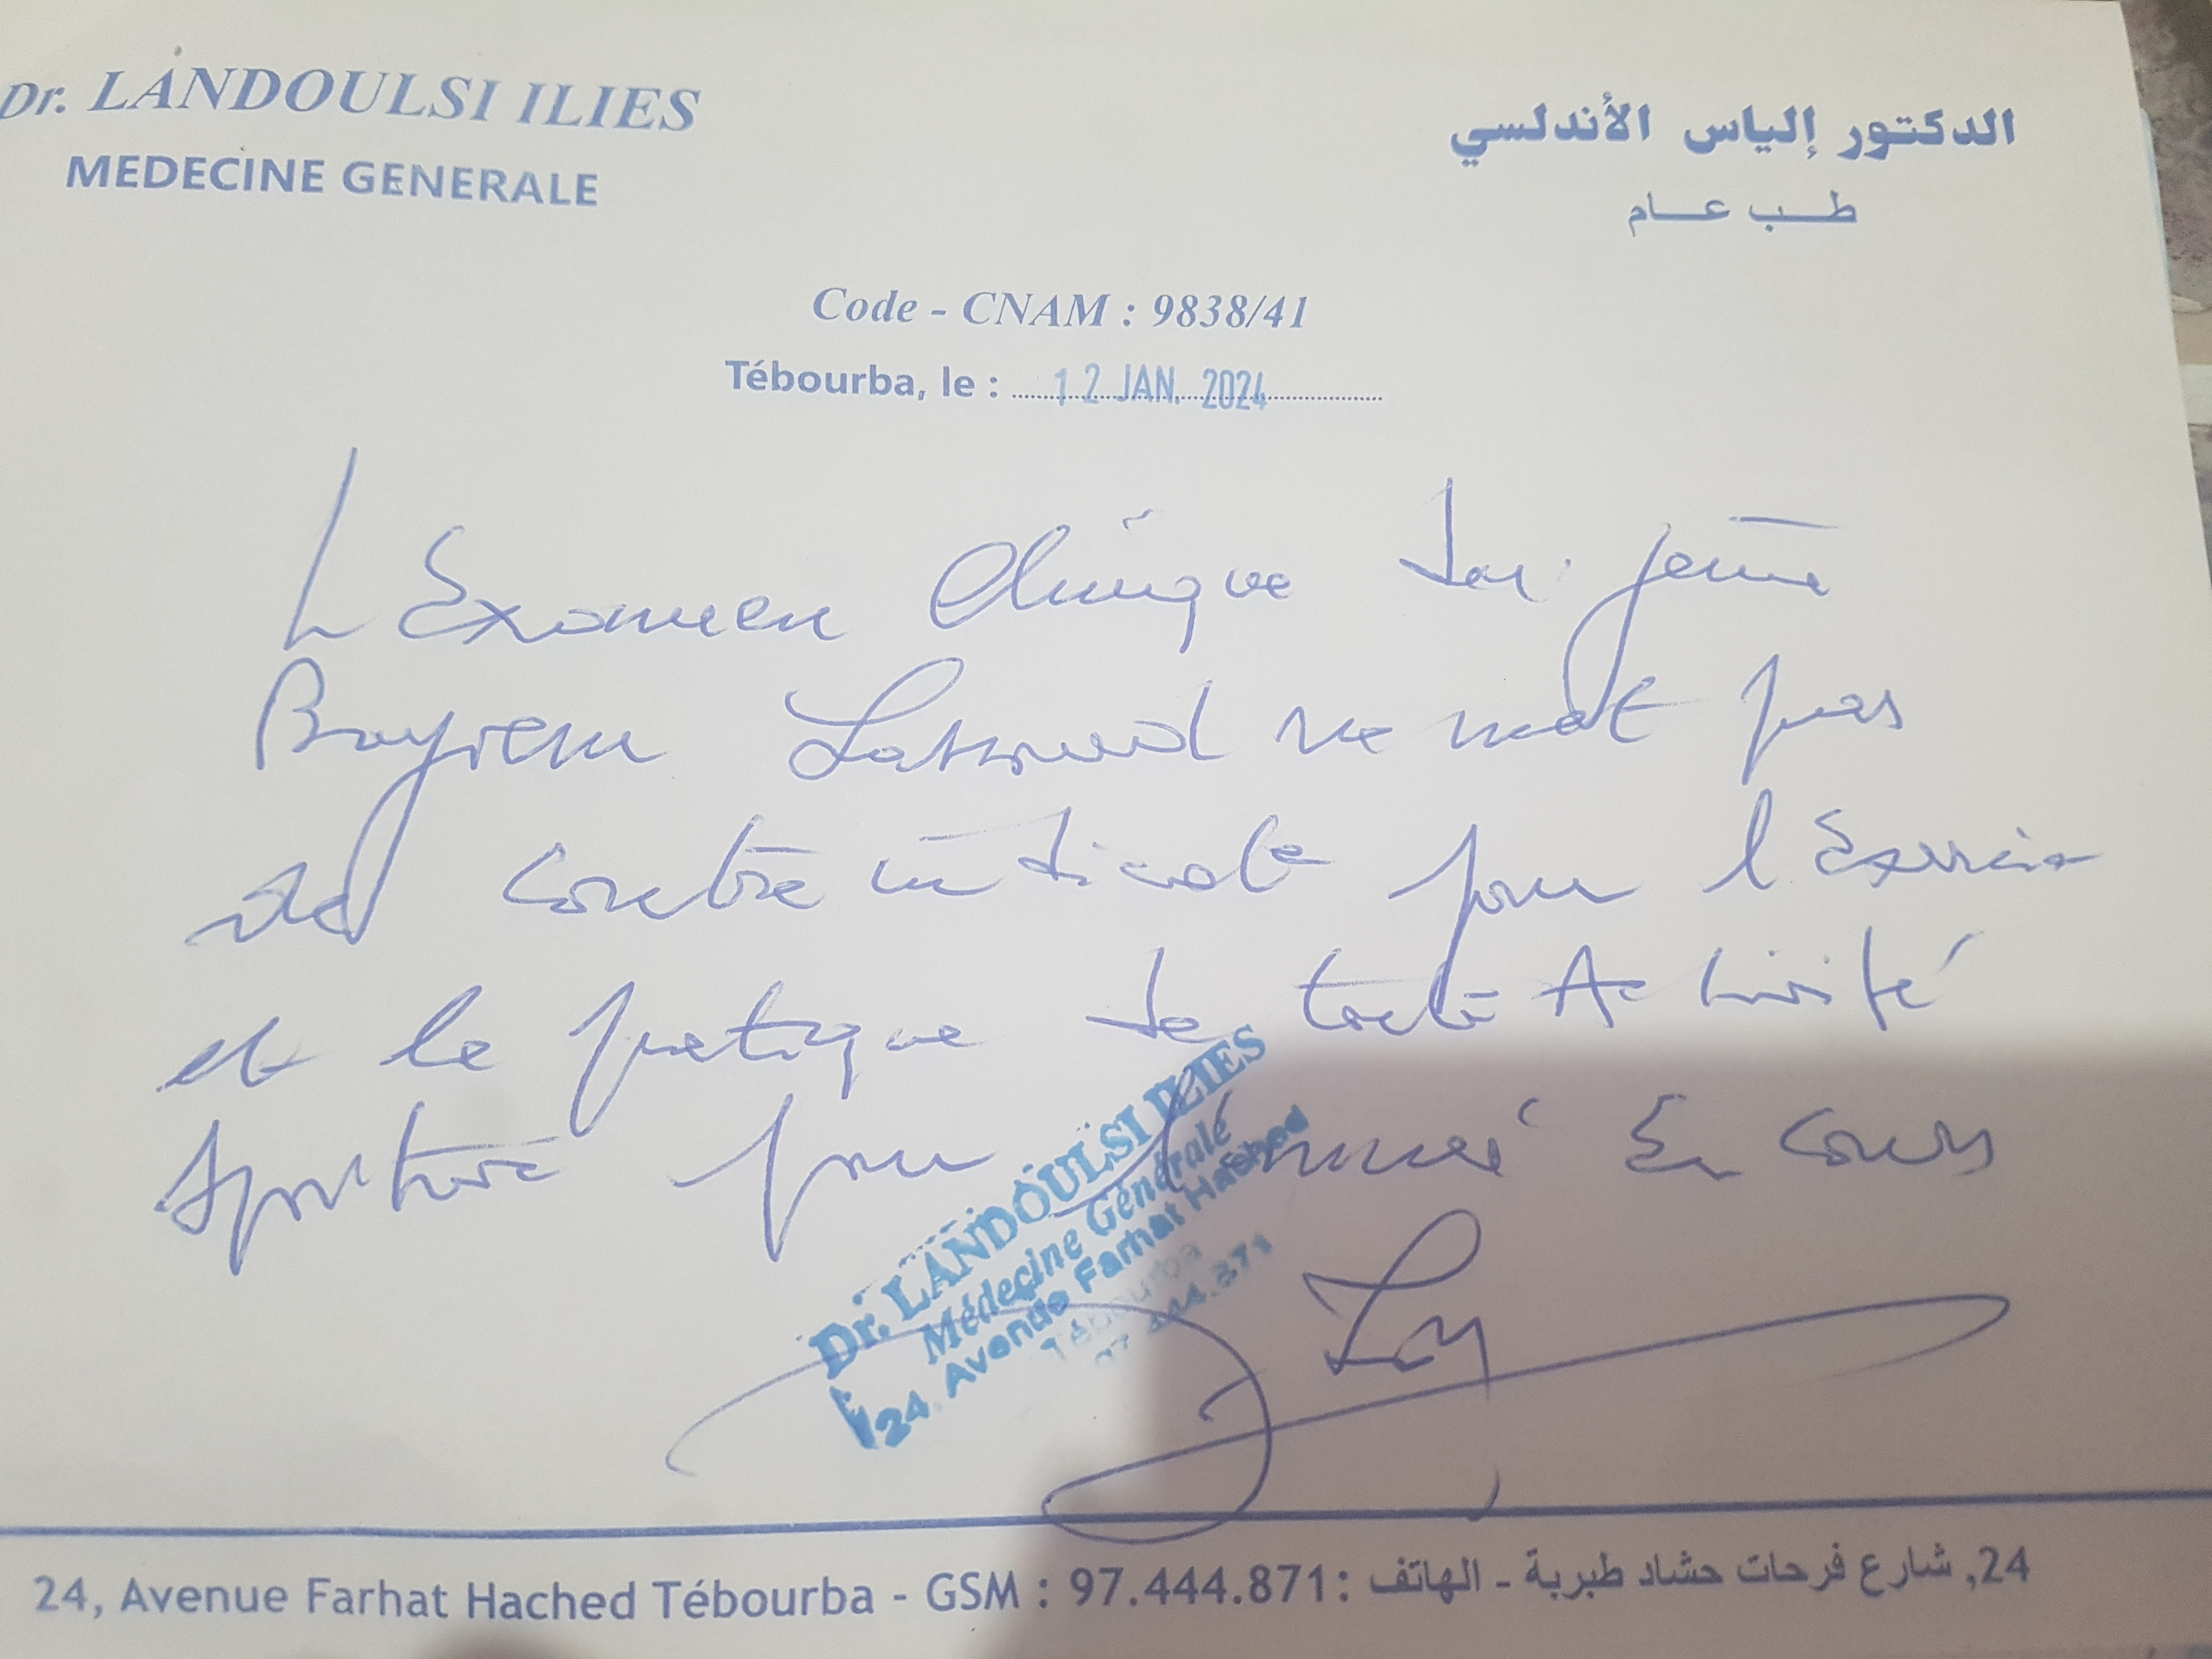 Dr. LANDOULSI ILIES
MEDECINE GENERALE
الدكتور إلياس الأندلسي
طب عام
Code - CNAM : 9838/41
Tébourba, le : 12 JAN. 2024
L Examen Clinique du jeune
Bayrem ne met pas
de contre indicate pour l'Exercice
et la pratique de toute Activité
Sportive pour l'année En cours
Dr. LANDOULSI ILIES
Médecine Générale
24, Avenue Farhat Hached
Tébourba
97 444.871
24, Avenue Farhat Hached Tébourba - GSM : 97.444.871 : 24, شارع فرحات حشاد طبربة - الهاتف